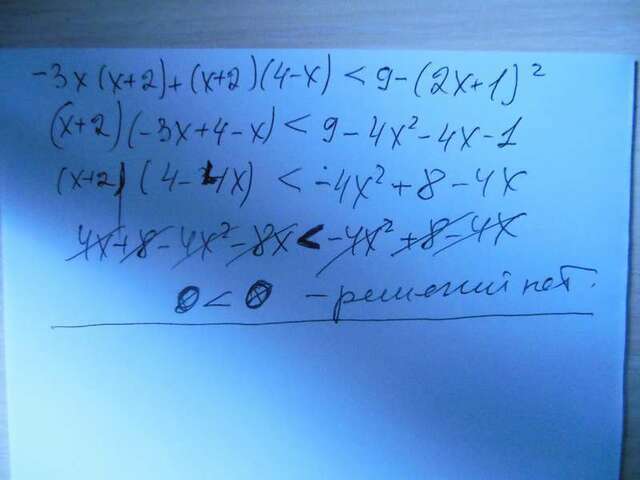 -3x(x+2)+(x+2)(4-x)<9-(2x+1)²
(x+2)(-3x+4-x)<9-4x²-4x-1
(x+2)(4-4x)<-4x²+8-4x
4x+8-4x²-8x<-4x²+8-4x
0<0 - решений нет.